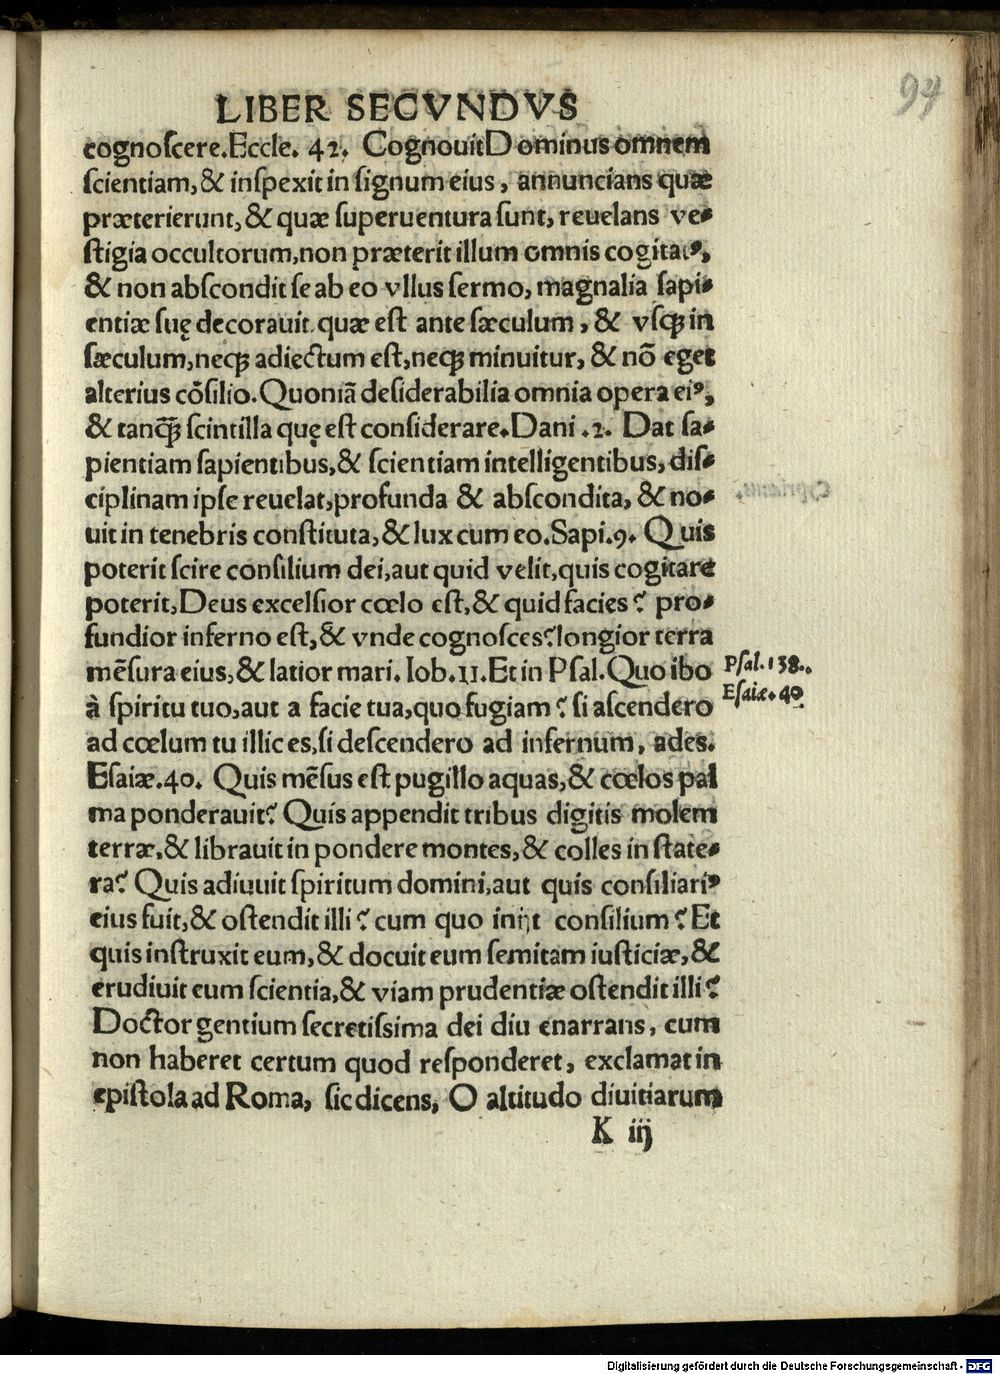 94
LIBER SECVNDVS
cognoſcere.Eccle. 42. CognouitDominus omnem
ſcientiam,& inſpexit in ſignum eius, annuncians quæ
præterierunt,& quæ ſuperuentura ſunt, reuelans ve⸗
ſtigia occultorum,non præterit illum omnis cogitatꝰ,
& non abſcondit ſe ab eo vllus ſermo, magnalia ſapi⸗
entiæ ſuę decorauit. quæ eſt ante ſæculum, & vſqꝫ in
ſæculum,neqꝫ adiectum eſt,neqꝫ minuitur, & nō eget
alterius cōſilio.Quoniā deſiderabilia omnia opera eiꝰ,
& tanq̄ꝫ ſcintilla quę eſt conſiderare.Dani .2. Dat ſa⸗
pientiam ſapientibus,& ſcientiam intelligentibus, diſ⸗
ciplinam ipſe reuelat,profunda & abſcondita, & no⸗
uit in tenebris conſtituta,& lux cum eo.Sapi.9. Quis
poterit ſcire conſilium dei,aut quid velit,quis cogitare
poterit,Deus excelſior cœlo eſt,& quid facies? pro⸗
fundior inferno eſt,& vnde cognoſces?longior terra
mēſura eius,& latior mari. Iob.11.Et in Pſal.Quo ibo
Pſal.138.
à ſpiritu tuo,aut a facie tua,quo fugiam? ſi aſcendero
Eſaiæ.40
ad cœlum tu illic es,ſi deſcendero ad infernum, ades.
Eſaiæ.40. Quis mēſus eſt pugillo aquas,& cœlos pal
ma ponderauit? Quis appendit tribus digitis molem
terræ,& librauit in pondere montes,& colles in ſtate⸗
ra? Quis adiuuit ſpiritum domini,aut quis conſiliariꝰ
eius fuit,& oſtendit illi? cum quo inijt conſilium? Et
quis inſtruxit eum,& docuit eum ſemitam iuſticiæ,&
erudiuit eum ſcientia,& viam prudentiæ oſtendit illi?
Doctor gentium ſecretiſsima dei diu enarrans, cum
non haberet certum quod reſponderet, exclamat in
epiſtola ad Roma, ſic dicens, O altitudo diuitiarum
K iij
Digitalisierung gefördert durch die Deutsche Forschungsgemeinschaft - DFG